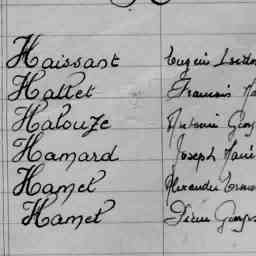 Haissant Eugène
Hallet François
Halouze Antoine Georg
Hamard Joseph Marie
Hamel Alexandre
Hamet Pierre Georges